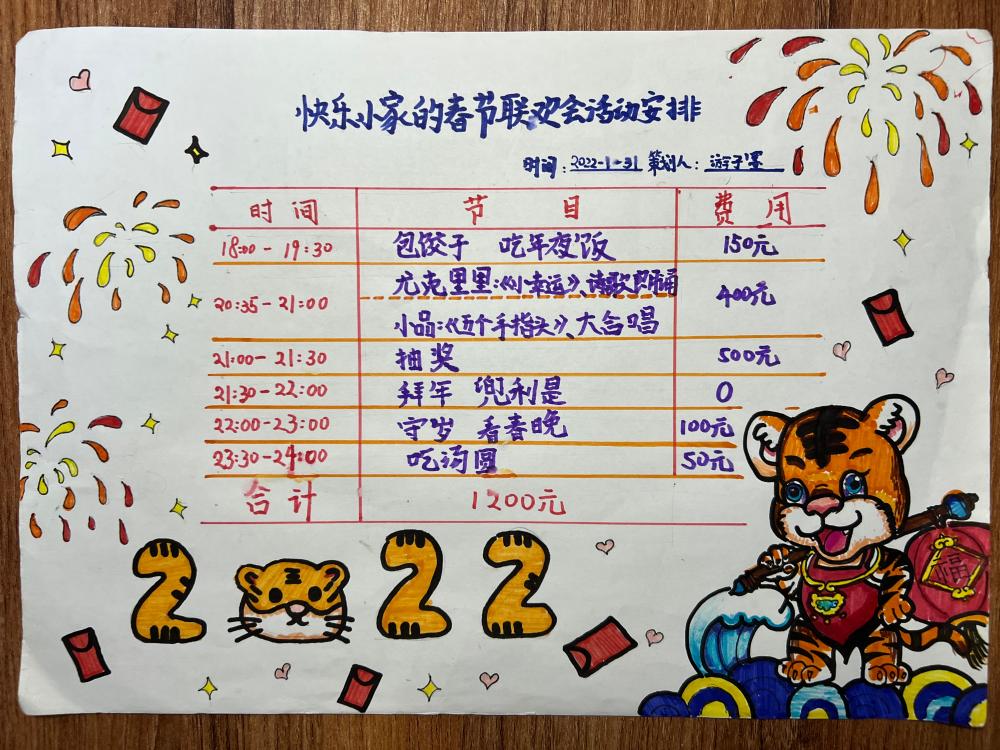 快乐小家的春节联欢会活动安排
时间:2022-1-31 策划人:游子墨
时间 节目 费用
18:00-19:30 包饺子 吃年夜饭 150元
尤克里里:《小幸运》、诗歌朗诵
20:35-21:00 400元
小品:《五个手指头》、大合唱
21:00-21:30 抽奖 500元
21:30-22:00 拜年 兜利是 0
22:00-23:00 守岁 看春晚 100元
23:30-24:00 吃汤圆 50元
合计 1200元
2 22
福